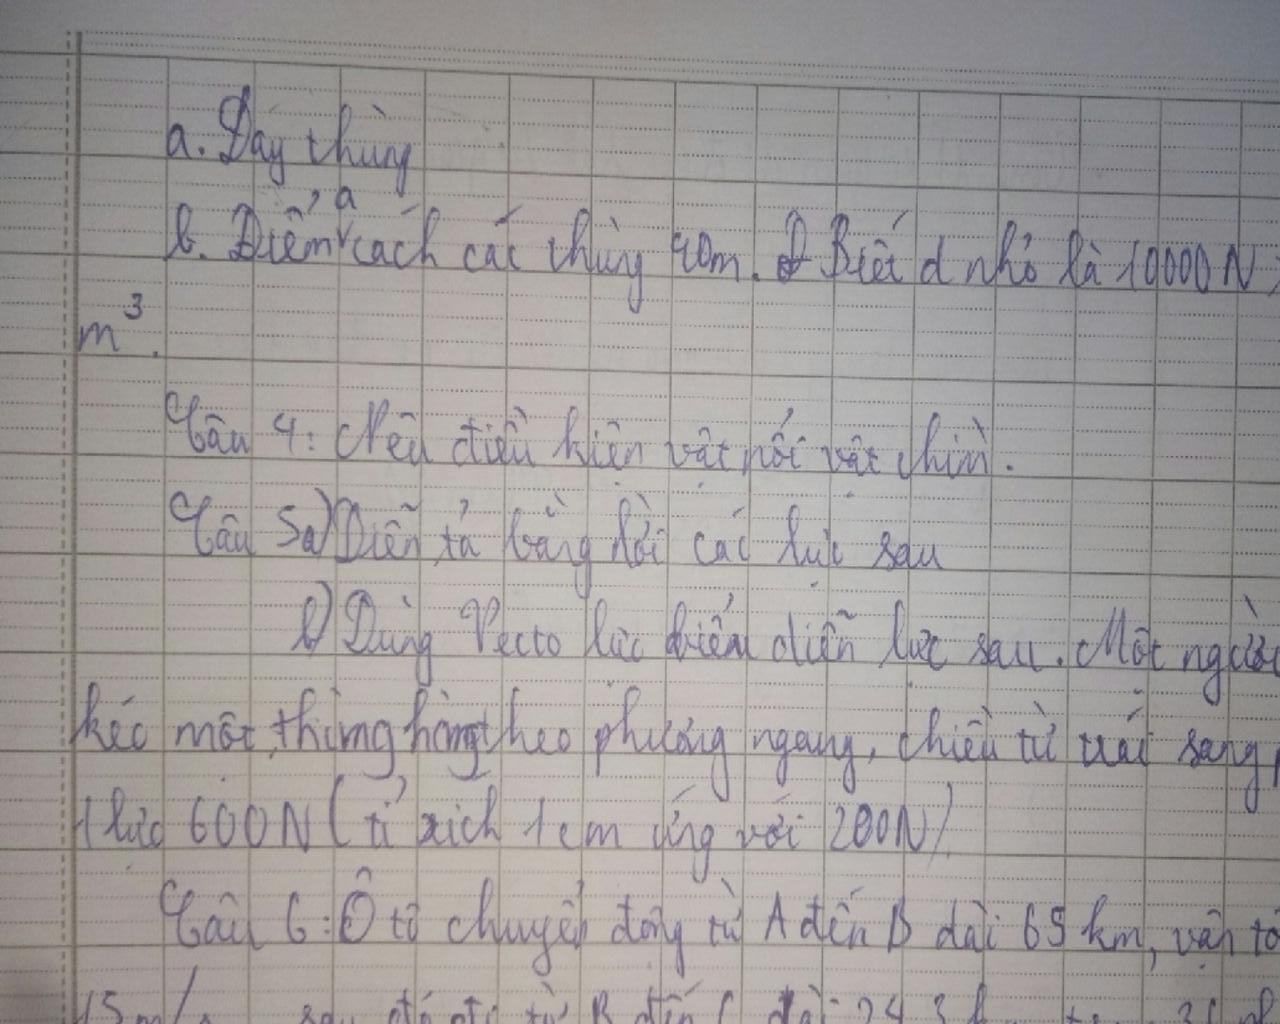 a. Đáy thùng
b. Điểm a cách các thùng 40m. Biết d nhỏ là 10000N
m³.
Câu 4: Nêu điều kiện vật nổi vật chìm.
Câu 5a) Diễn tả bằng lời các lực sau
b) Dùng Vecto lực biểu diễn lực sau. Một người
kéo một thùng hàng theo phương ngang, chiều từ trái sang
1 lực 600N (tỉ xích 1cm ứng với 200N)
Câu 6: Ô tô chuyển động từ A đến B dài 65 km, vận tố
15m/s sau đó đi từ B đến C dài 24,3